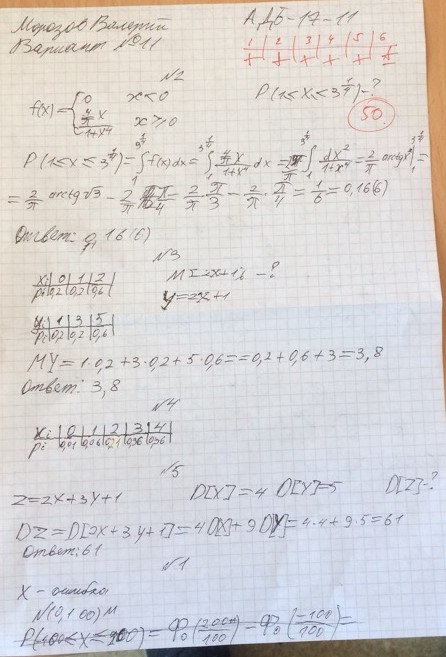 Морозов Валерий
АДБ-17-11
Вариант №11
1 2 3 4 5 6
+ + + + + ±
№2
f(x)={0 x<0
(4/π x)/(1+x⁴) x≥0
P(1≤x≤3^(1/4))-?
50
P(1≤x≤3^(1/4))=∫f(x)dx=∫(4/π x)/(1+x⁴) dx=2/π ∫dx²/(1+x⁴)=2/π arctg x²|=
=2/π arctg√3 - 2/π π/4 = 2/π π/3 - 2/π π/4 = 1/6 = 0,16(6)
Ответ: 0,16(6)
№3
xi|0|1|2
pi|0,2|0,2|0,6
M[2x+1] -?
y=2x+1
yi|1|3|5
pi|0,2|0,2|0,6
MY=1·0,2+3·0,2+5·0,6==0,2+0,6+3=3,8
Ответ: 3,8
№4
xi|0|1|2|3|4
pi|0,01|0,06|0,21|0,36|0,36
№5
Z=2X+3Y+1
D[X]=4 D[Y]=5
D[Z]-?
DZ=D[2X+3Y+1]=4D[X]+9D[Y]=4·4+9·5=61
Ответ: 61
№1
X - ошибка
N(0,100) м
P(100≤X≤200)=Φ₀(200/100)-Φ₀(-100/100)=